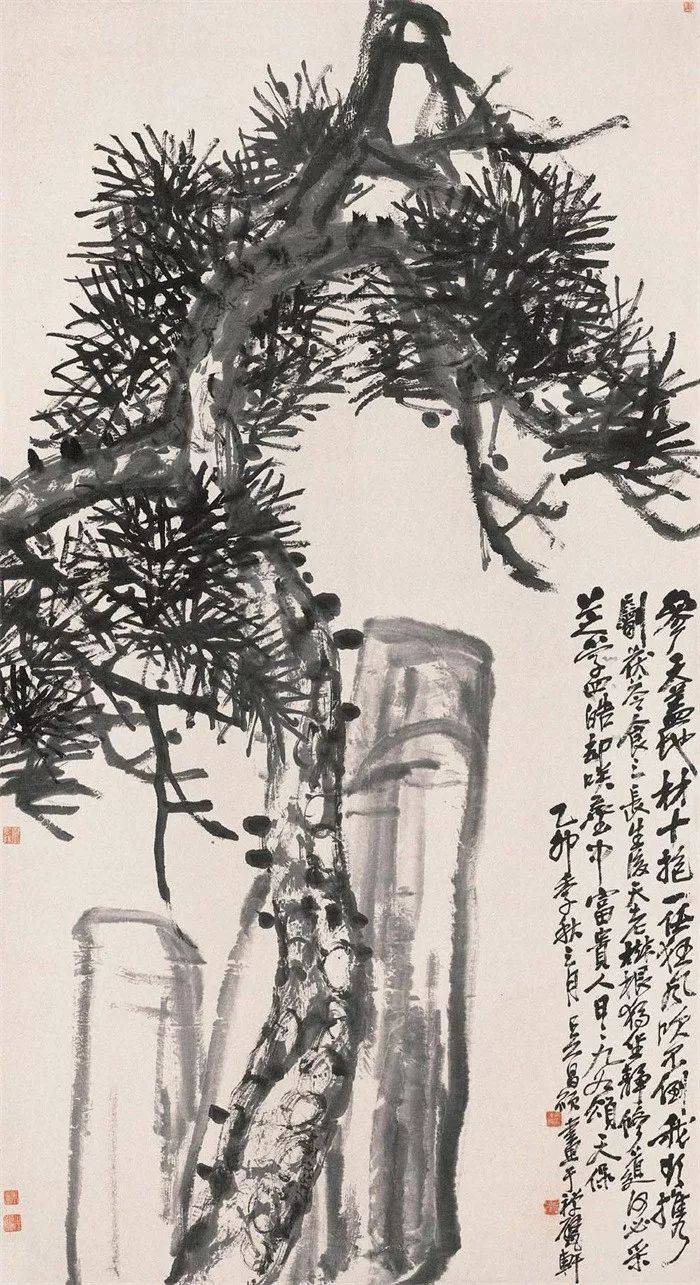 參天蓋地材十抱一任狂風吹不倒我欲攜
劚茯苓食之長生後天老松根獨坐靜脩何必采
芝學四皓却咲塵中富貴人日〻九如頌天保
乙卯季秋之月吳昌碩畫于禪甓軒